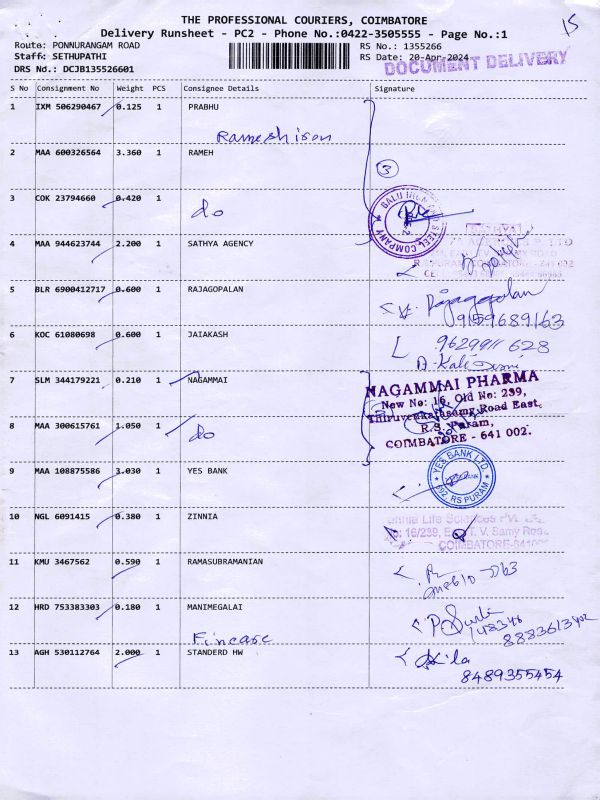 THE PROFESSIONAL COURIERS, COIMBATORE
15
Delivery Runsheet - PC2 - Phone No.:0422-3505555 - Page No.:1
Route: PONNURANGAM ROAD
RS No.: 1355266
Staff: SETHUPATHI
RS Date: 20-Apr-2024
DRS No.: DCJB135526601
DOCUMENT DELIVERY
S No Consignment No Weight PCS Consignee Details Signature
1 IXM 506290467 0.125 1 PRABHU
Rameshison
2 MAA 600326564 3.360 1 RAMEH
3
3 COK 23794660 0.420 1
do
BALU STEEL COMPANY
4 MAA 944623744 2.200 1 SATHYA AGENCY
SATHYA
5 BLR 6900412717 0.600 1 RAJAGOPALAN
Rajagopalan
9159689163
6 KOC 61080698 0.600 1 JAIAKASH
9629911628
7 SLM 344179221 0.210 1 NAGAMMAI
NAGAMMAI PHARMA
New No: 16, Old No: 239,
Thiruvenkatasamy Road East,
R.S. Puram,
COIMBATORE - 641 002.
8 MAA 300615761 1.050 1
do
9 MAA 108875586 3.030 1 YES BANK
YES BANK LTD
RS PURAM
10 NGL 6091415 0.380 1 ZINNIA
Life Sciences
16/239, T. V. Samy Road
COIMBATORE-641
11 KMU 3467562 0.590 1 RAMASUBRAMANIAN
12 HRD 753383303 0.180 1 MANIMEGALAI
Fincare
13 AGH 530112764 2.000 1 STANDERD HW
8489355454